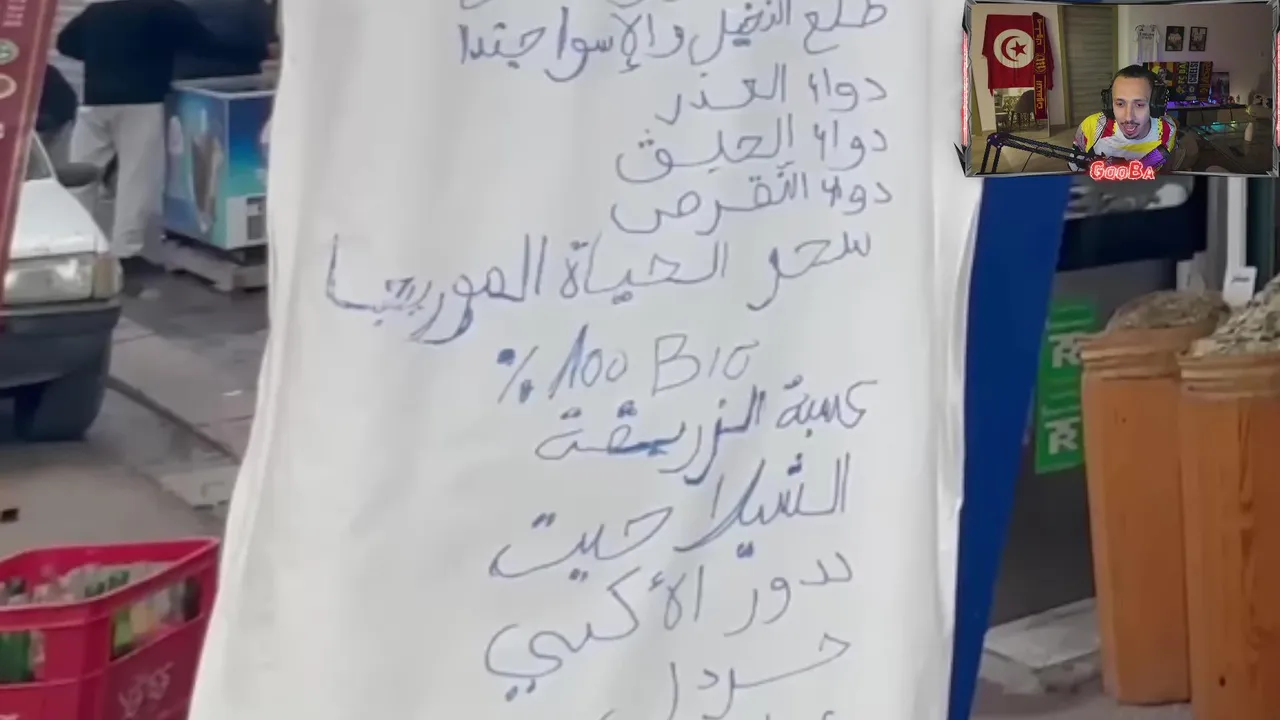 طلع النخيل والإسواجندا
دواء العذر
دواء الحليق
دواء التقرص
سحر الحياة الموريـنجـا
% 100 BIO
عسبة الزريقة
الشيلاحيت
بدور الأكتي
خردل
GOOBA